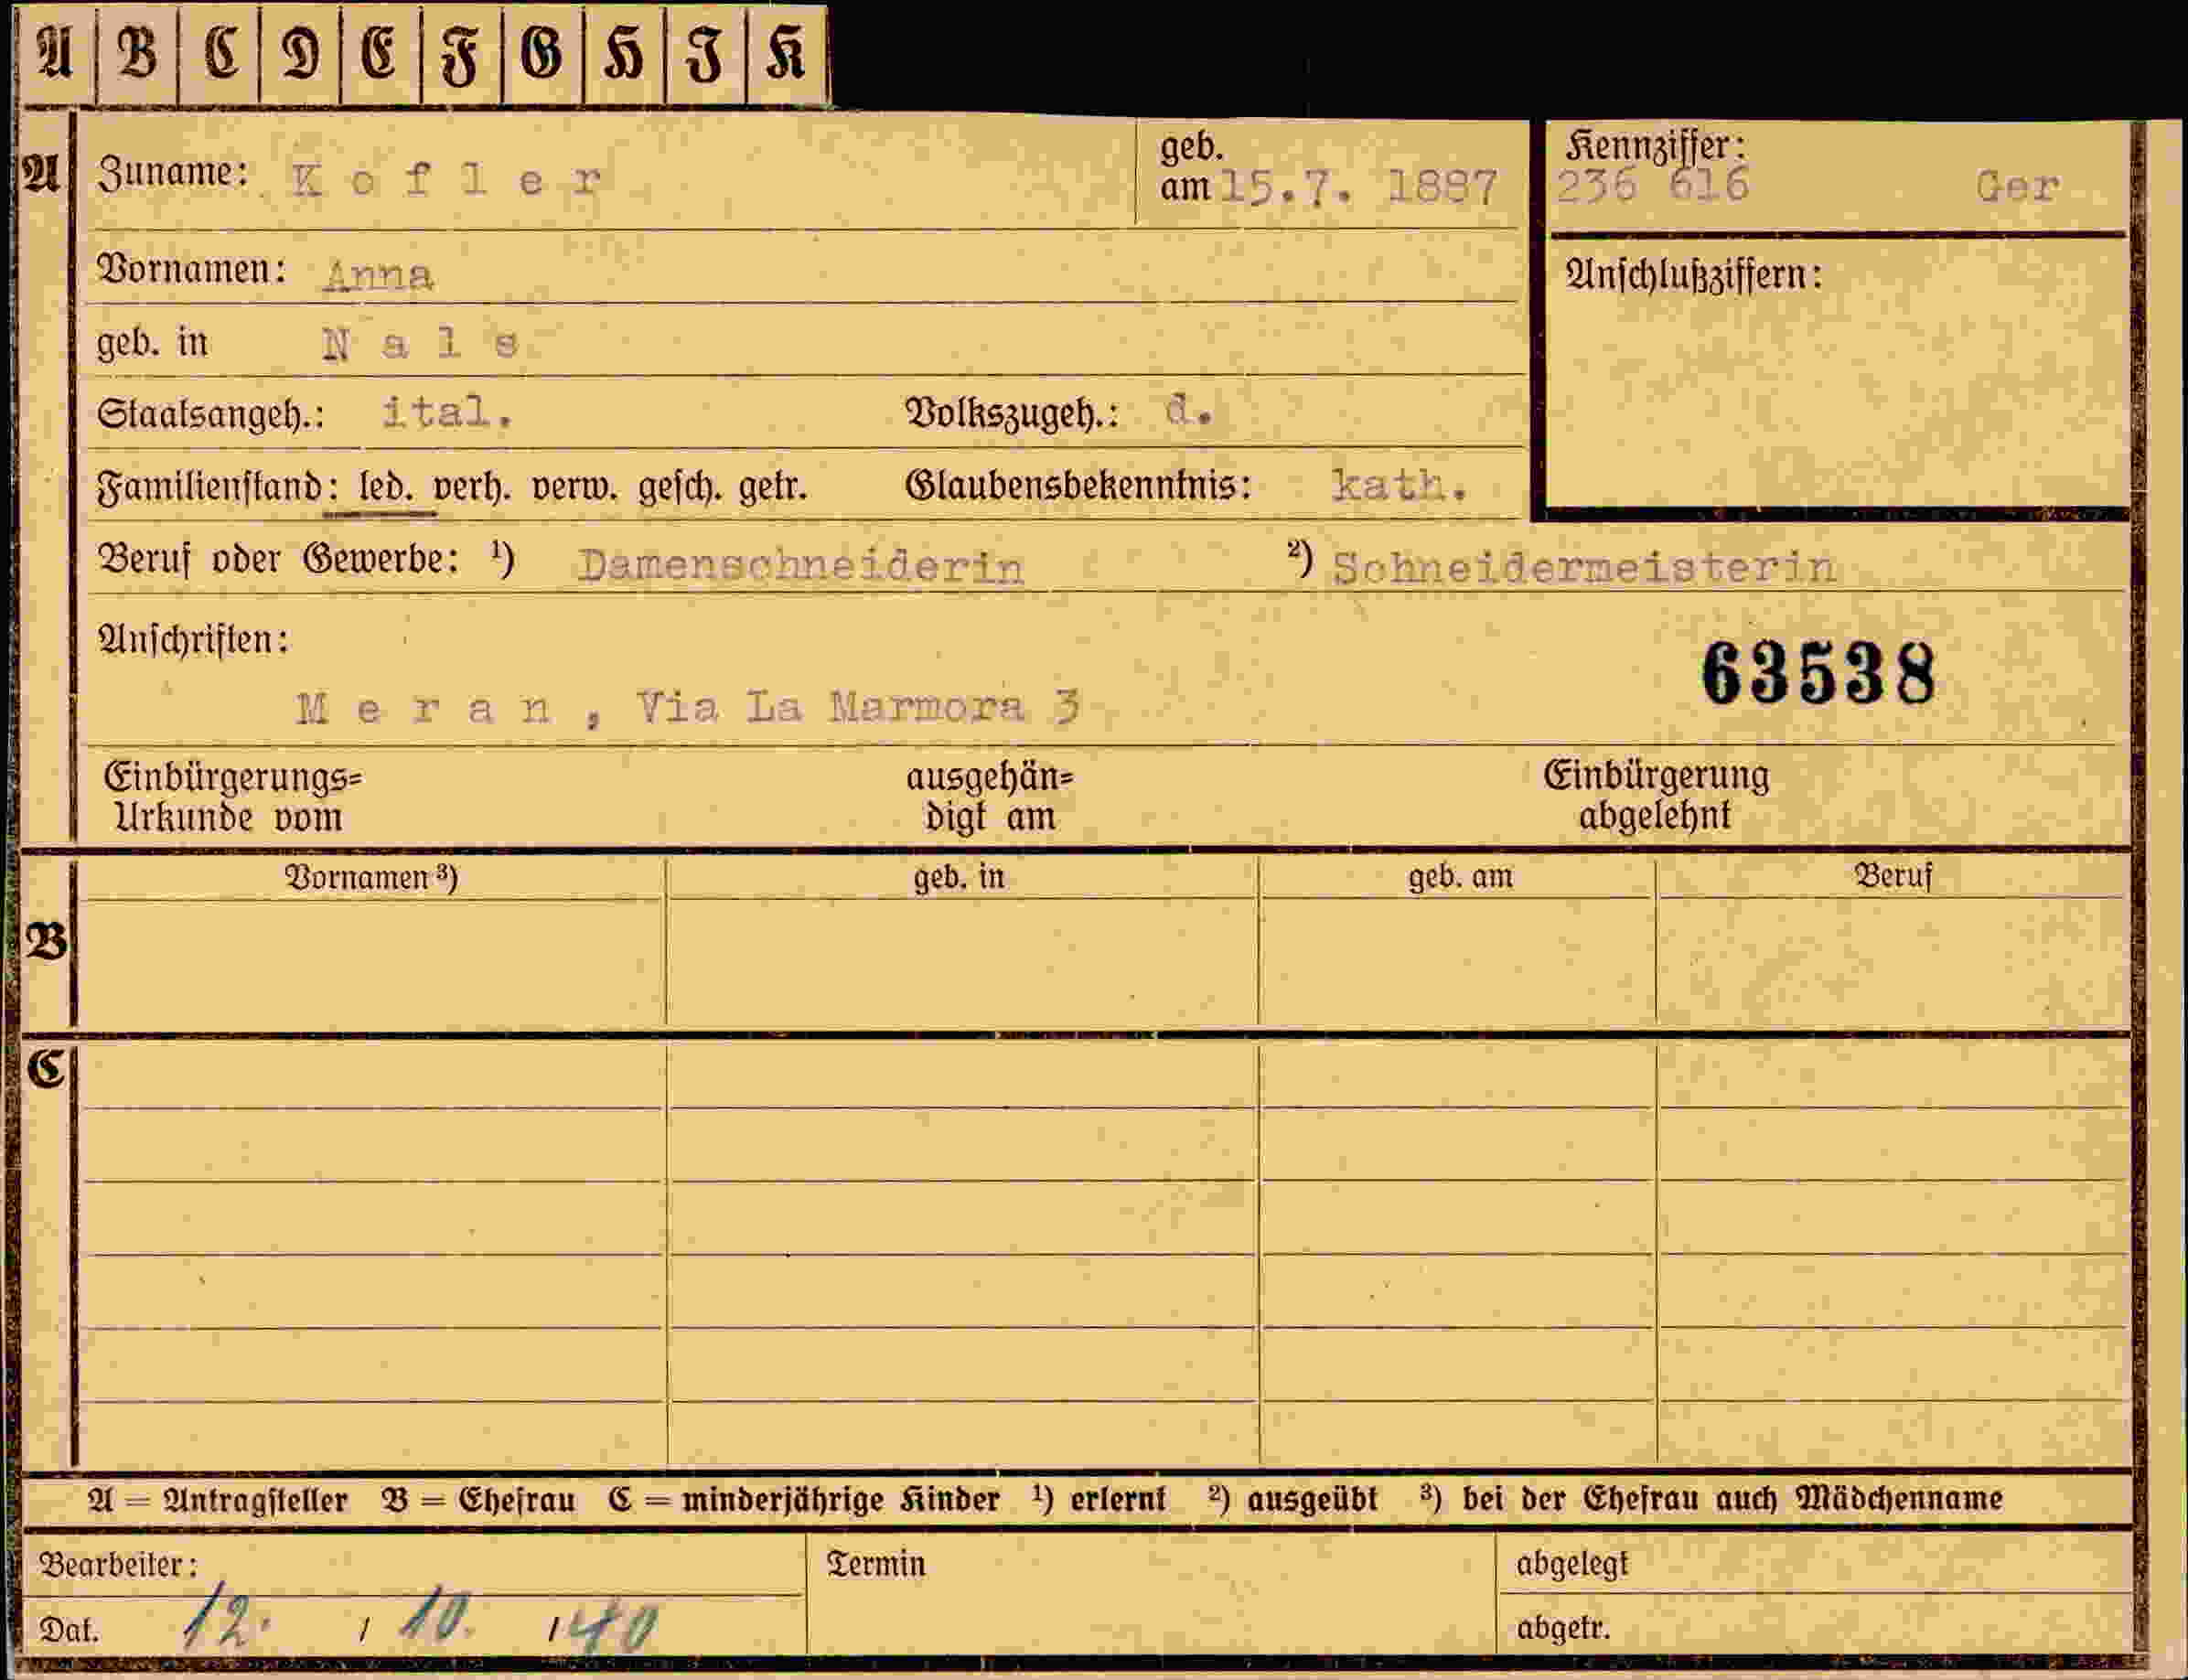 A B C D E F G H I K
A Zuname: Kofler geb. am 15.7. 1887 Kennziffer: 236 616 Ger
Vornamen: Anna Anschlußziffern:
geb. in Nals
Staatsangeh.: ital. Volkszugeh.: d.
Familienstand: led. verh. verw. gesch. getr. Glaubensbekenntnis: kath.
Beruf oder Gewerbe: ¹) Damenschneiderin ²) Schneidermeisterin
Anschriften:
63538
Meran, Via La Marmora 3
Einbürgerungs= ausgehän= Einbürgerung
Urkunde vom digt am abgelehnt
Vornamen ³) geb. in geb. am Beruf
B
C
A = Antragsteller B = Ehefrau C = minderjährige Kinder ¹) erlernt ²) ausgeübt ³) bei der Ehefrau auch Mädchenname
Bearbeiter: Termin abgelegt
Dat. 12. / 10. / 40 abgetr.